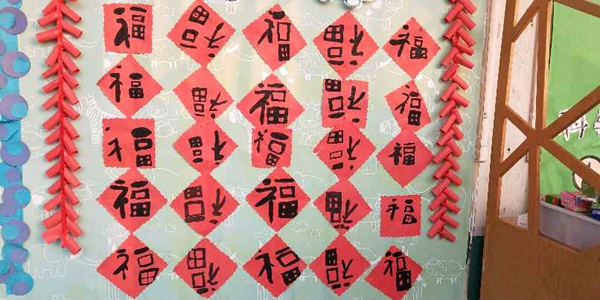 福 福 福 福 福
福 福 福 福 福
福 福 福 福 福
福 福 福 福 福
福 福 福 福 福